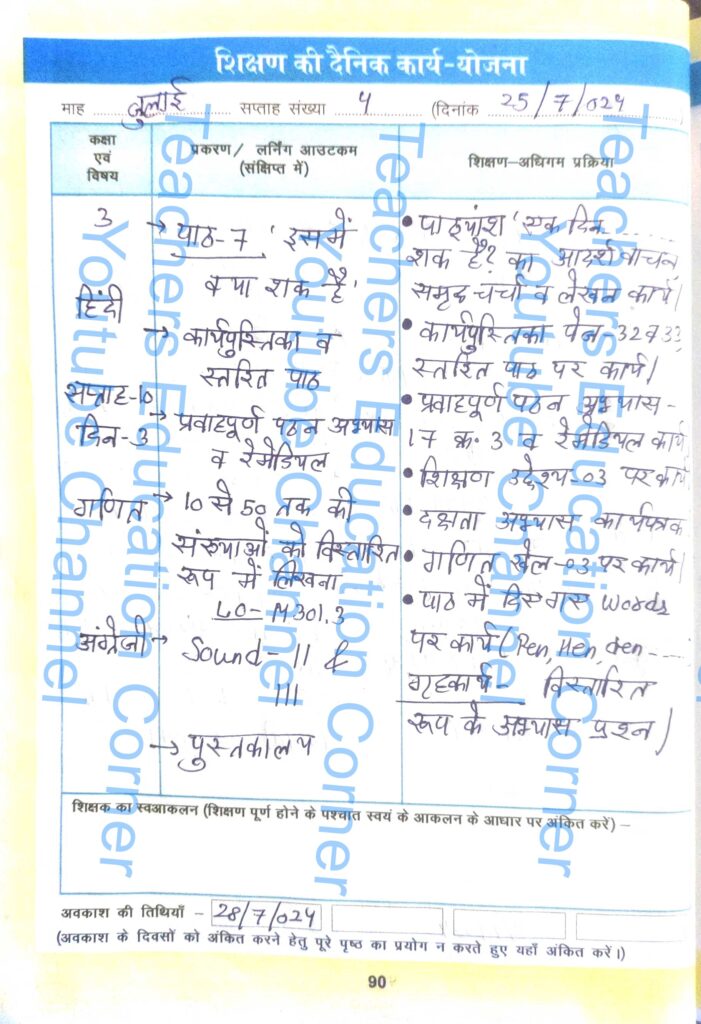 शिक्षण की दैनिक कार्य-योजना
माह जुलाई सप्ताह संख्या 4 (दिनांक 25/7/024
कक्षा
एवं
विषय
प्रकरण/ लर्निंग आउटकम
(संक्षिप्त में)
शिक्षण-अधिगम प्रक्रिया
3
हिंदी
सप्ताह-10
दिन-3
गणित
अंग्रेजी
→ पाठ-7 'इसमें
क्या शक है'
→ कार्यपुस्तिका व
स्तरित पाठ
→ प्रवाहपूर्ण पठन अभ्यास
व रेमेडियल
→ 10 से 50 तक की
संख्याओं को विस्तारित
रूप में लिखना
LO- M301.3
→ Sound- II &
III
→ पुस्तकालय
• पाठ्यांश 'एक दिन.....
शक है? का आदर्श वाचन,
समूह चर्चा व लेखन कार्य।
• कार्यपुस्तिका पेज-32व33,
स्तरित पाठ पर कार्य।
• प्रवाहपूर्ण पठन अभ्यास-
17 क्र. 3 व रेमेडियल कार्य
• शिक्षण उद्देश्य-03 पर कार्य
• दक्षता अभ्यास कार्यपत्रक
• गणित खेल-03 पर कार्य।
• पाठ में दिए गए words
पर कार्य (Pen, Hen, den ....
गृहकार्य- विस्तारित
रूप के अभ्यास प्रश्न।
शिक्षक का स्वआकलन (शिक्षण पूर्ण होने के पश्चात स्वयं के आकलन के आधार पर अंकित करें) –
अवकाश की तिथियाँ - 28/7/024
(अवकाश के दिवसों को अंकित करने हेतु पूरे पृष्ठ का प्रयोग न करते हुए यहाँ अंकित करें।)
90
Teachers Education Corner
Youtube Channel
Teachers Education Corner
Youtube Channel
Teachers Education Corner
Youtube Channel